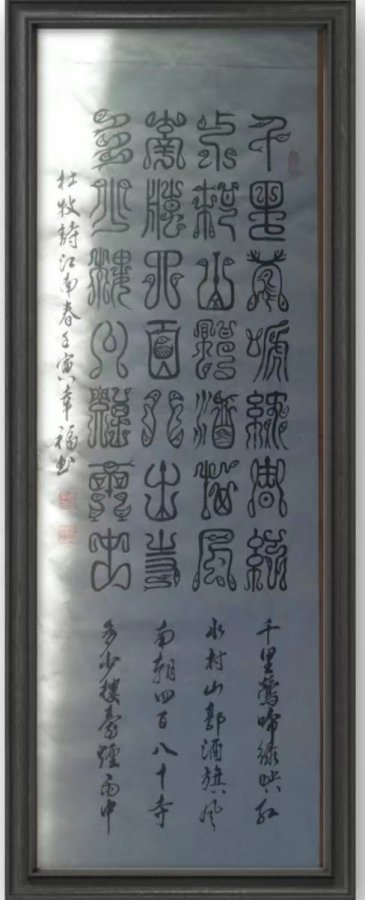 千里鶯啼綠映紅
水村山郭酒旗風
南朝四百八十寺
多少樓臺煙雨中
千里鶯啼綠映紅
水村山郭酒旗风
南朝四百八十寺
多少樓臺煙雨中
杜牧詩江南春壬寅幸福书